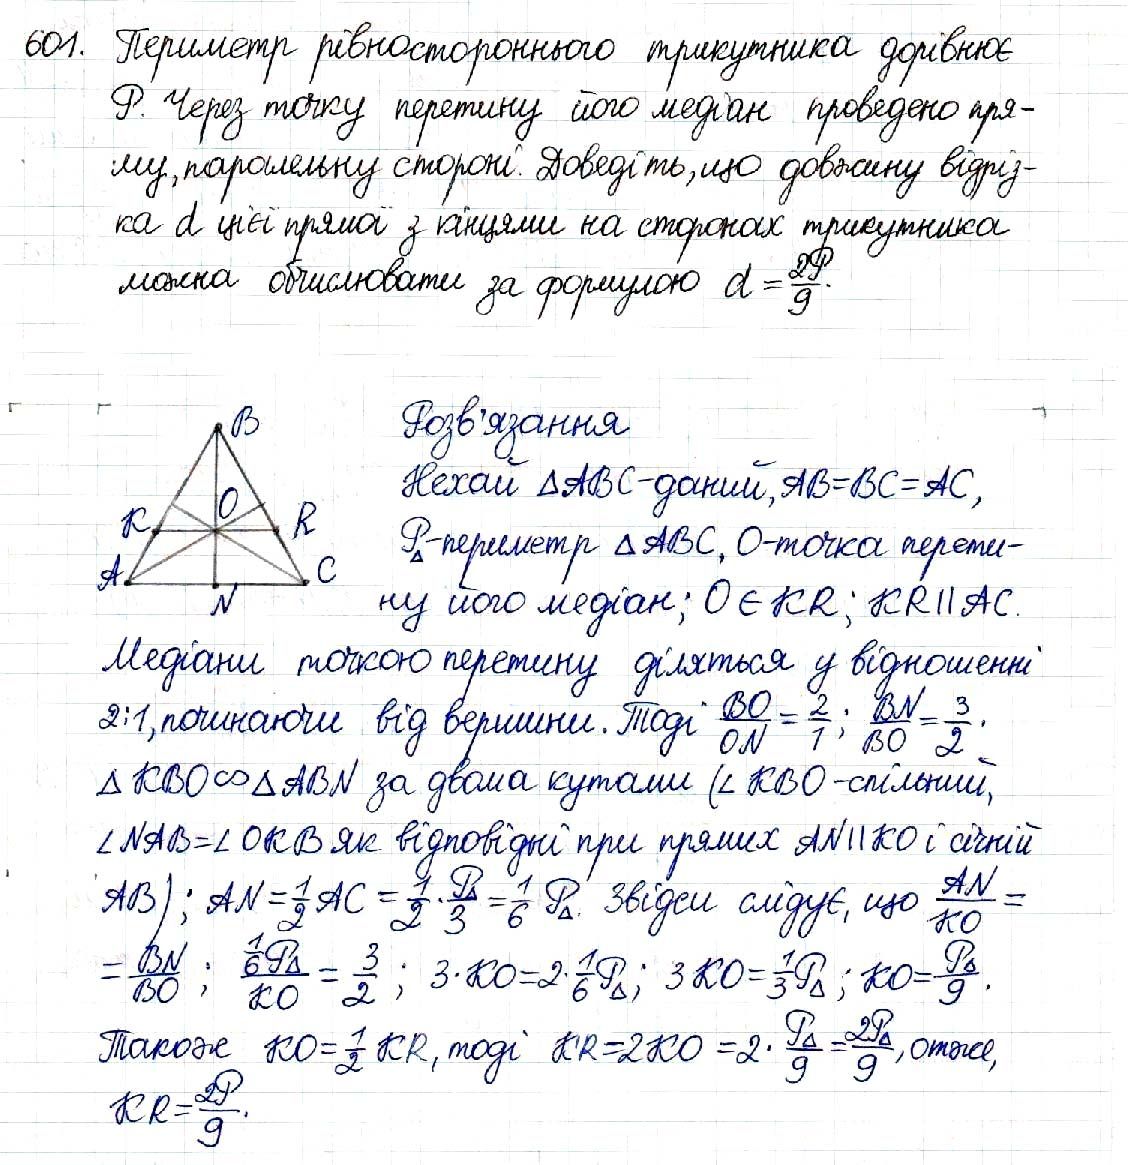 601. Периметр рівностороннього трикутника дорівнює
P. Через точку перетину його медіан проведено пря-
му, паралельну стороні. Доведіть, що довжину відріз-
ка d цієї прямої з кінцями на сторонах трикутника
можна обчислювати за формулою d = 2P/9.
B
O
K
R
A
C
N
Розв'язання
Нехай △ABC-даний, AB=BC=AC,
P△-периметр △ABC, O-точка перети-
ну його медіан; O ∈ KR; KR || AC.
Медіани точкою перетину діляться у відношенні
2:1, починаючи від вершини. Тоді BO/ON = 2/1; BN/BO = 3/2.
△KBO ∽ △ABN за двома кутами (∠KBO-спільний,
∠NAB=∠OKB як відповідні при прямих AN || KO і січній
AB); AN = 1/2 AC = 1/2 · P△/3 = 1/6 P△. Звідси слідує, що AN/KO =
= BN/BO; 1/6 P△/KO = 3/2; 3·KO = 2·1/6 P△; 3KO = 1/3 P△; KO = P△/9.
Також KO = 1/2 KR, тоді KR = 2KO = 2 · P△/9 = 2P△/9, отже,
KR = 2P/9.